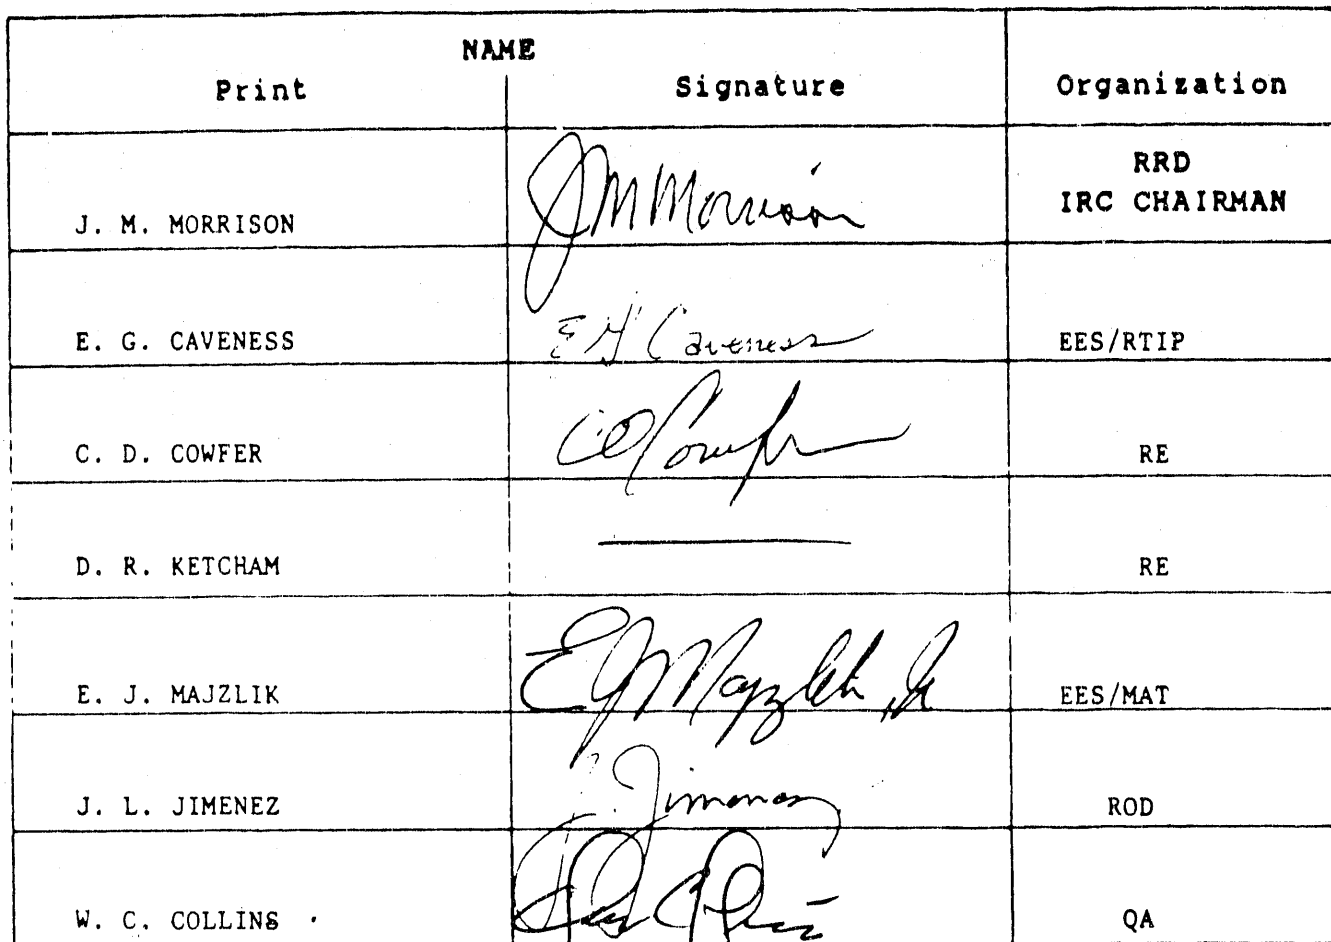 NAME
Print Signature Organization
RRD
IRC CHAIRMAN
J. M. MORRISON JM Morrison
E. G. CAVENESS E G Caveness EES/RTIP
C. D. COWFER CD Cowfer RE
D. R. KETCHAM RE
E. J. MAJZLIK EJ Majzlik, Jr EES/MAT
J. L. JIMENEZ Jimenez ROD
W. C. COLLINS QA